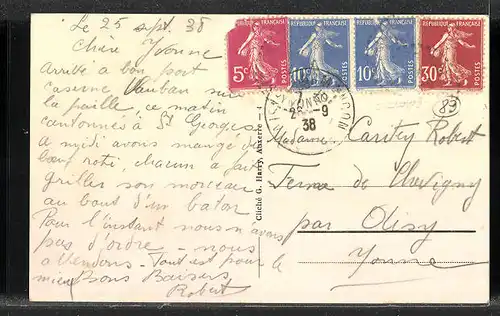 Le 25 sept. 38
Chère Yvonne
Arrivé à bon port
caserne Vauban sur
la paille, ce matin
cantonnés à St Georges
a midi avons mangé du
boeuf roti, chacun a fait
griller son morceau
au bout d'un baton
Pour l'instant nous n'avons
pas d'ordre - nous
attendons - Tout est pour
mieux Bons Baisers
Robert
Cliché G. Harry, Auxerre
REPUBLIQUE FRANÇAISE
5c
POSTES
REPUBLIQUE FRANÇAISE
10c
POSTES
REPUBLIQUE FRANÇAISE
10c
POSTES
REPUBLIQUE FRANÇAISE
30c
POSTES
9
38
89
Madame Robert
Ferme de Chevigny
par Olisy
Yonne